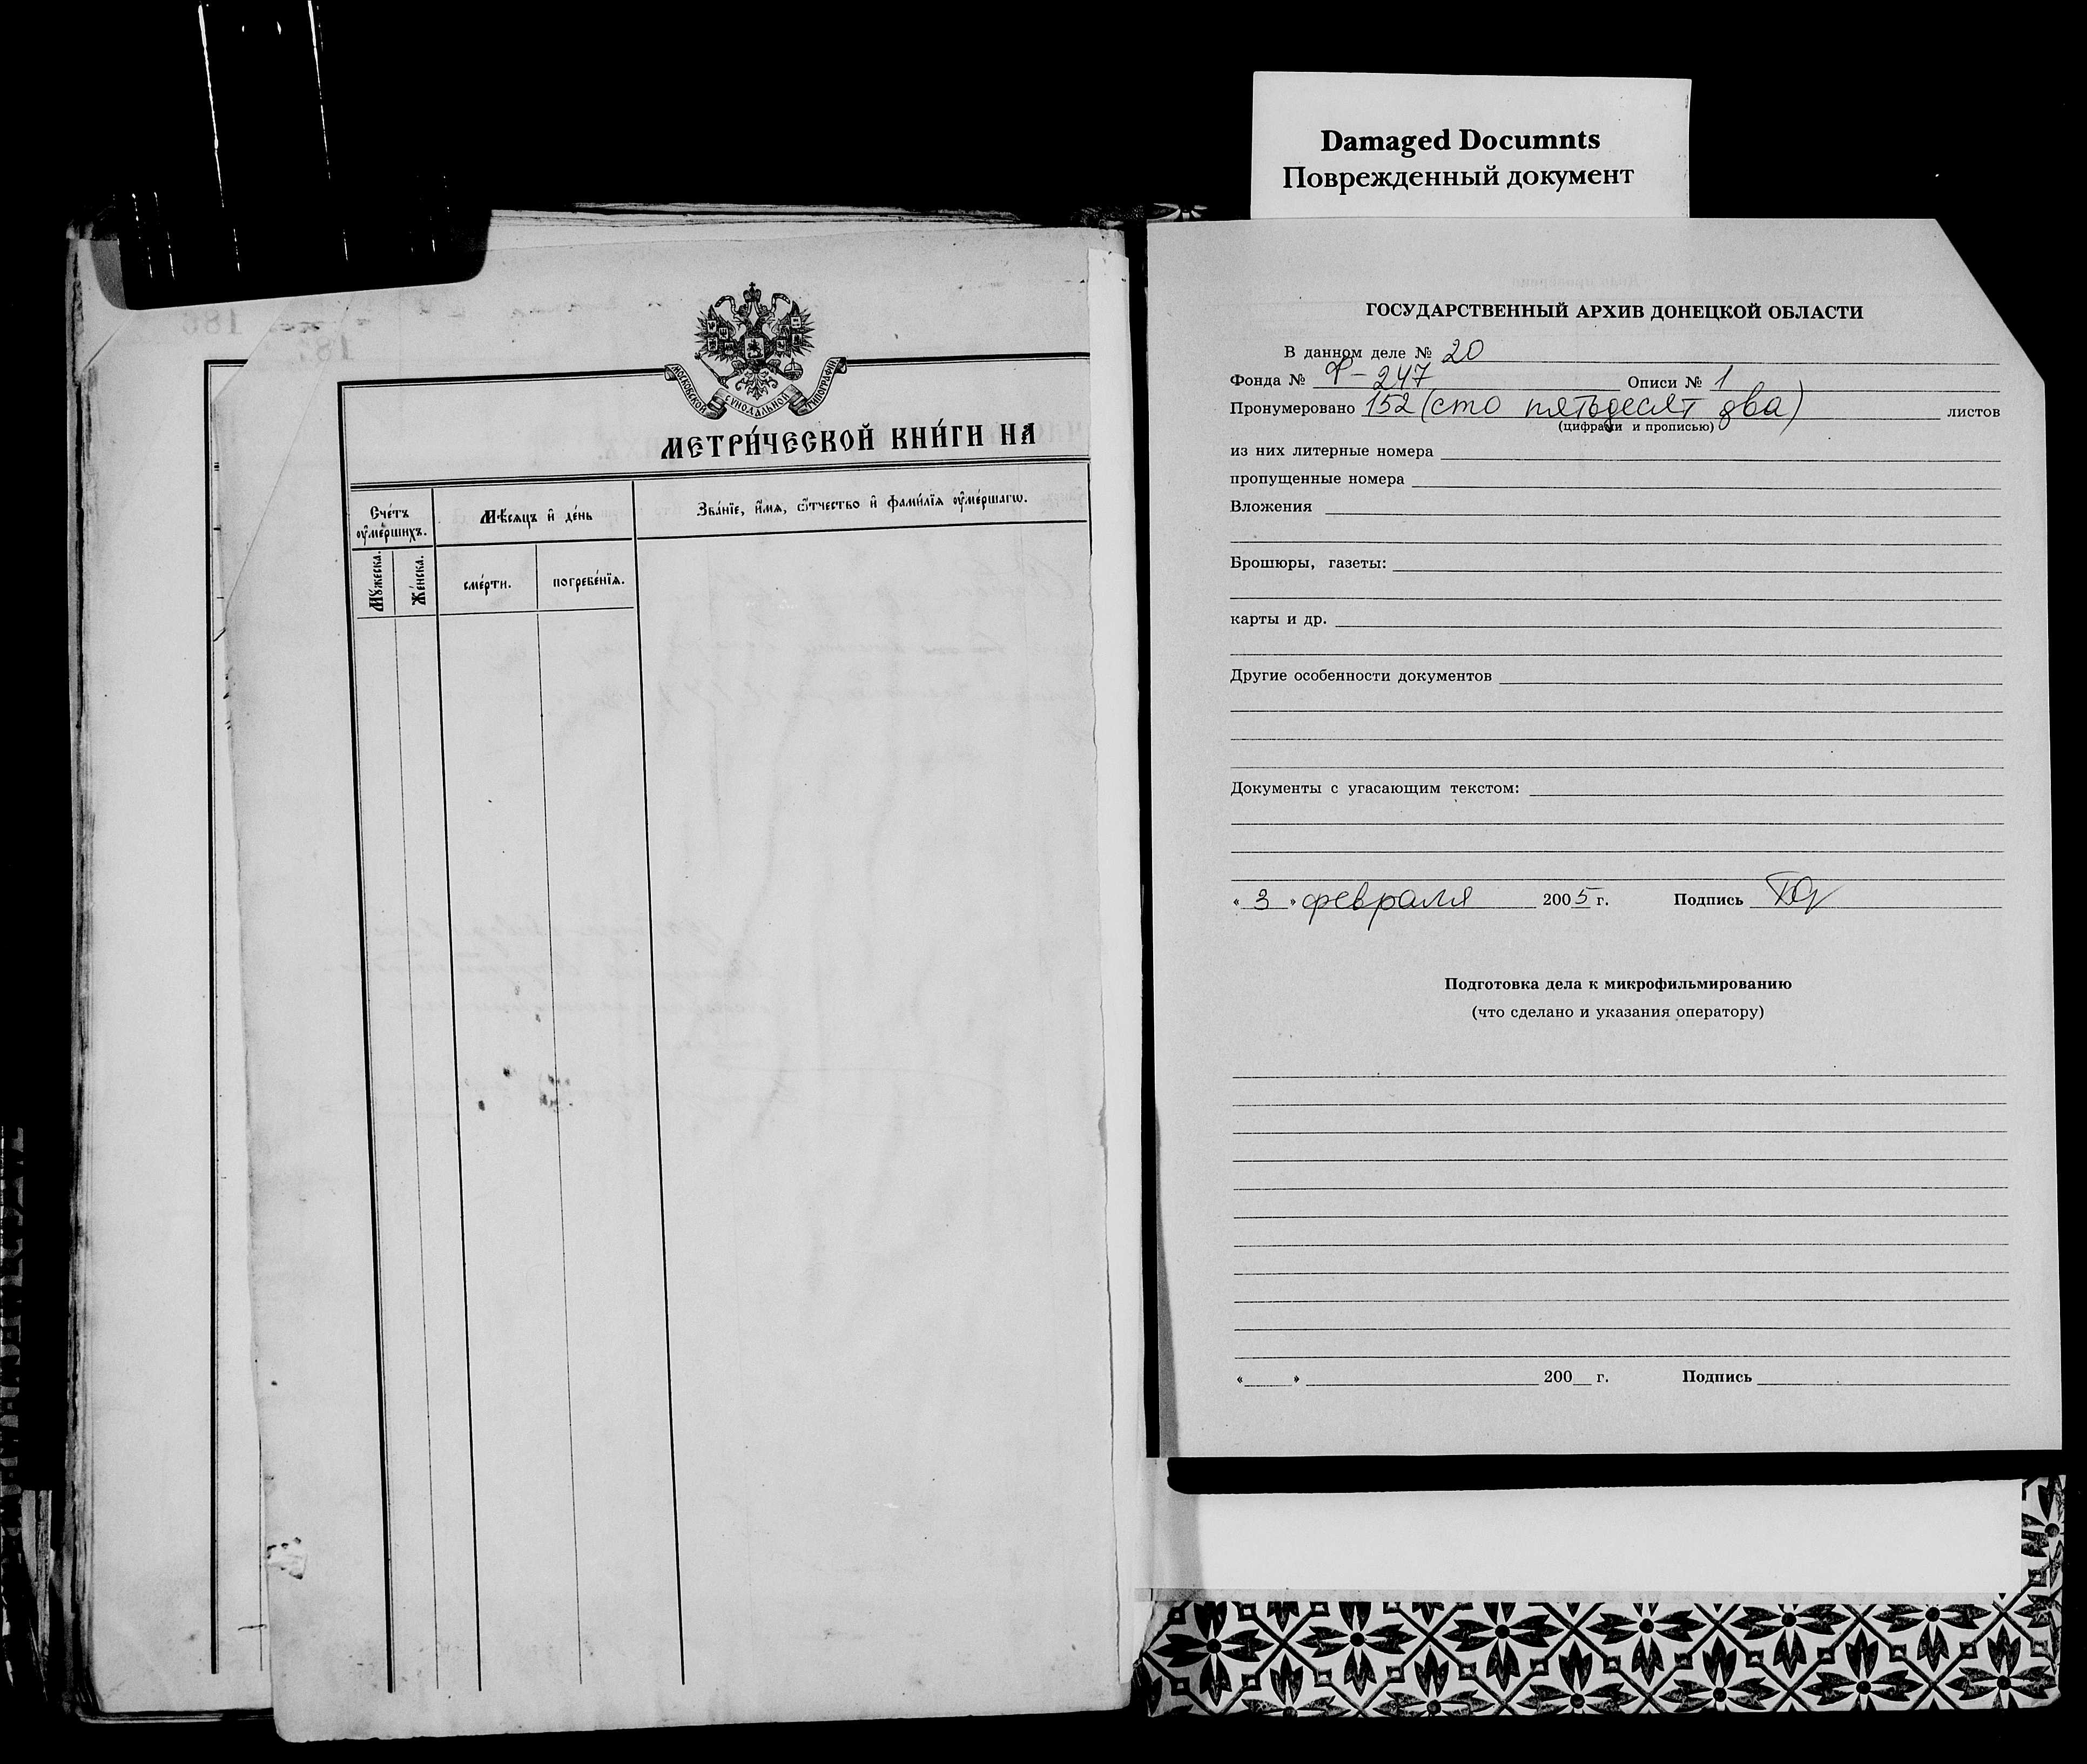 Damaged Documnts
Поврежденный документ
МОСКОВСКОЙ СѴНОДАЛЬНОЙ ТИПОГРАФІИ
МЕТРИ́ЧЕСКОЙ КНИ́ГИ НА
Сче́тъ ᲂу҆ме́ршихъ.
Мѣ́сяцъ и҆ де́нь
Зва́нїе, и҆́мя, ѻ҆́тчество и҆ фами́лїя ᲂу҆ме́ршагѡ.
Мꙋ́жеска.
Же́нска.
сме́рти.
погребе́нїя.
186
187
ГОСУДАРСТВЕННЫЙ АРХИВ ДОНЕЦКОЙ ОБЛАСТИ
В данном деле № 20
Фонда № Ф-247 Описи № 1
Пронумеровано 152 (сто пятьдесят два) листов
(цифрами и прописью)
из них литерные номера
пропущенные номера
Вложения
Брошюры, газеты:
карты и др.
Другие особенности документов
Документы с угасающим текстом:
« 3 » февраля 2005 г. Подпись
Подготовка дела к микрофильмированию
(что сделано и указания оператору)
« » 200 г. Подпись